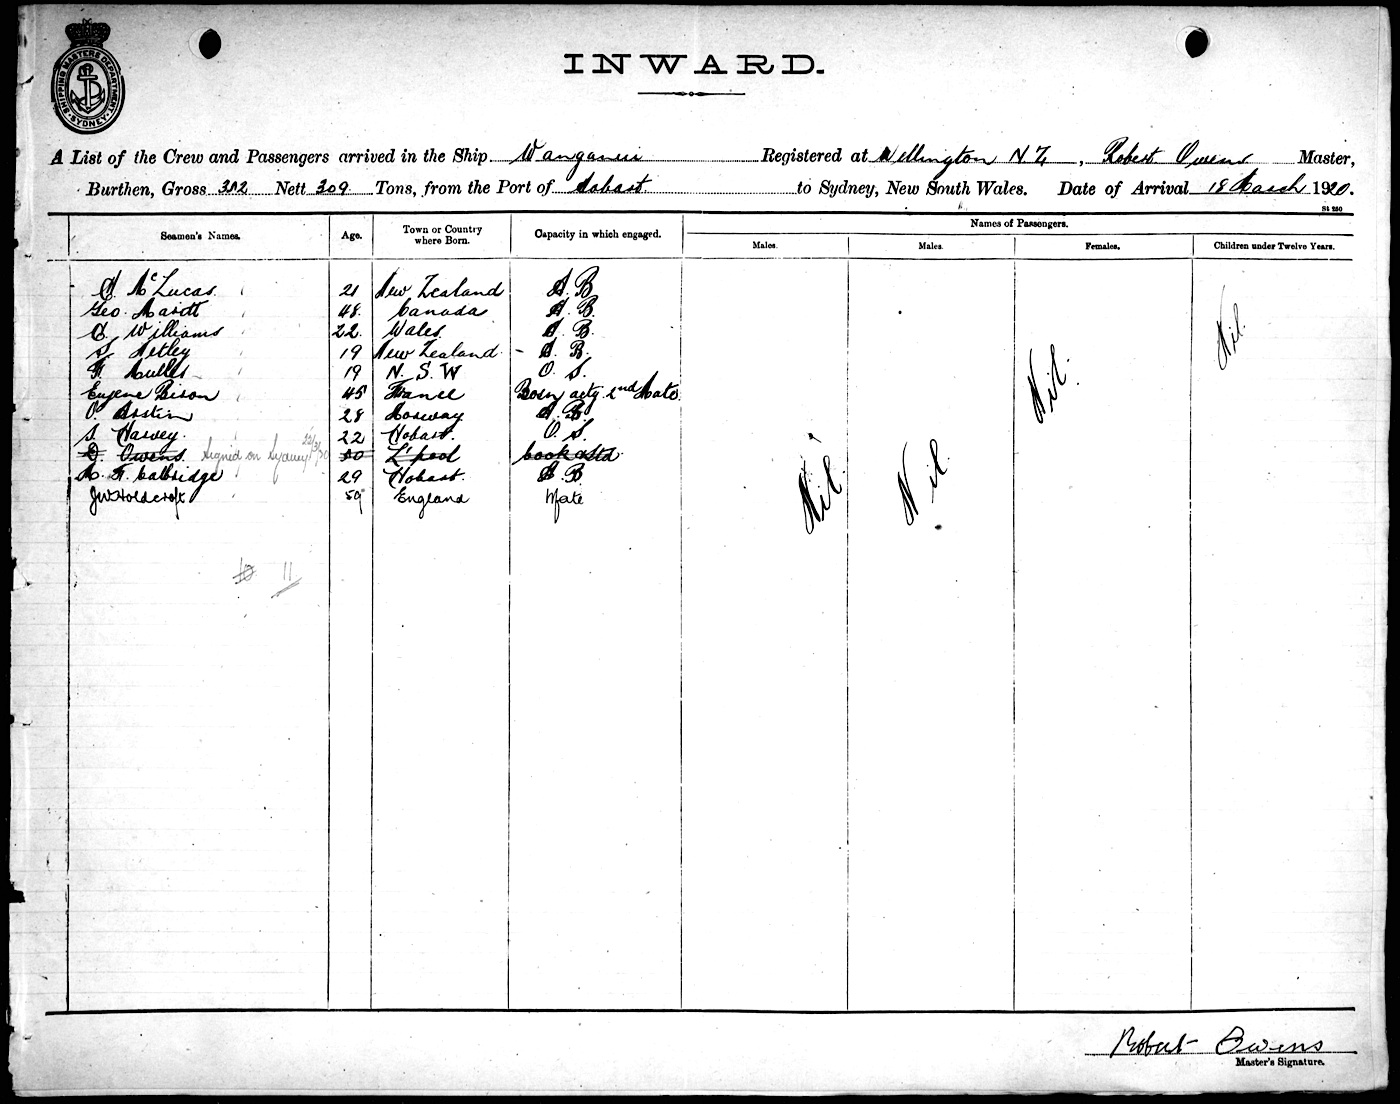 SHIPPING MASTERS DEPARTMENT SYDNEY
INWARD.
A List of the Crew and Passengers arrived in the Ship Wanganui Registered at Wellington N.Z, Robert Owens Master,
Burthen, Gross 312 Nett 309 Tons, from the Port of Hobart to Sydney, New South Wales. Date of Arrival 18 March 1920.
St 250
Seamen's Names. Age. Town or Country where Born. Capacity in which engaged. Names of Passengers.
Males. Males. Females. Children under Twelve Years.
McLucas 21 New Zealand A.B
Geo. 48 Canada A.B.
C. Williams 22 Wales A.B.
S. Netley 19 New Zealand - A.B.
F. 19 N.S.W O.S.
Eugene Bison 45 France Bosn actg 2nd Mate
O. 28 Norway A.B.
S. Harvey 22 Hobart. O.S.
D. Owens. Signed on Sydney 50 L'pool cook & Std
F. 29 Hobart. A.B.
JW Holdcroft 59 England Mate
Nil Nil Nil Nil.
10 11
Robert Owens
Master's Signature.